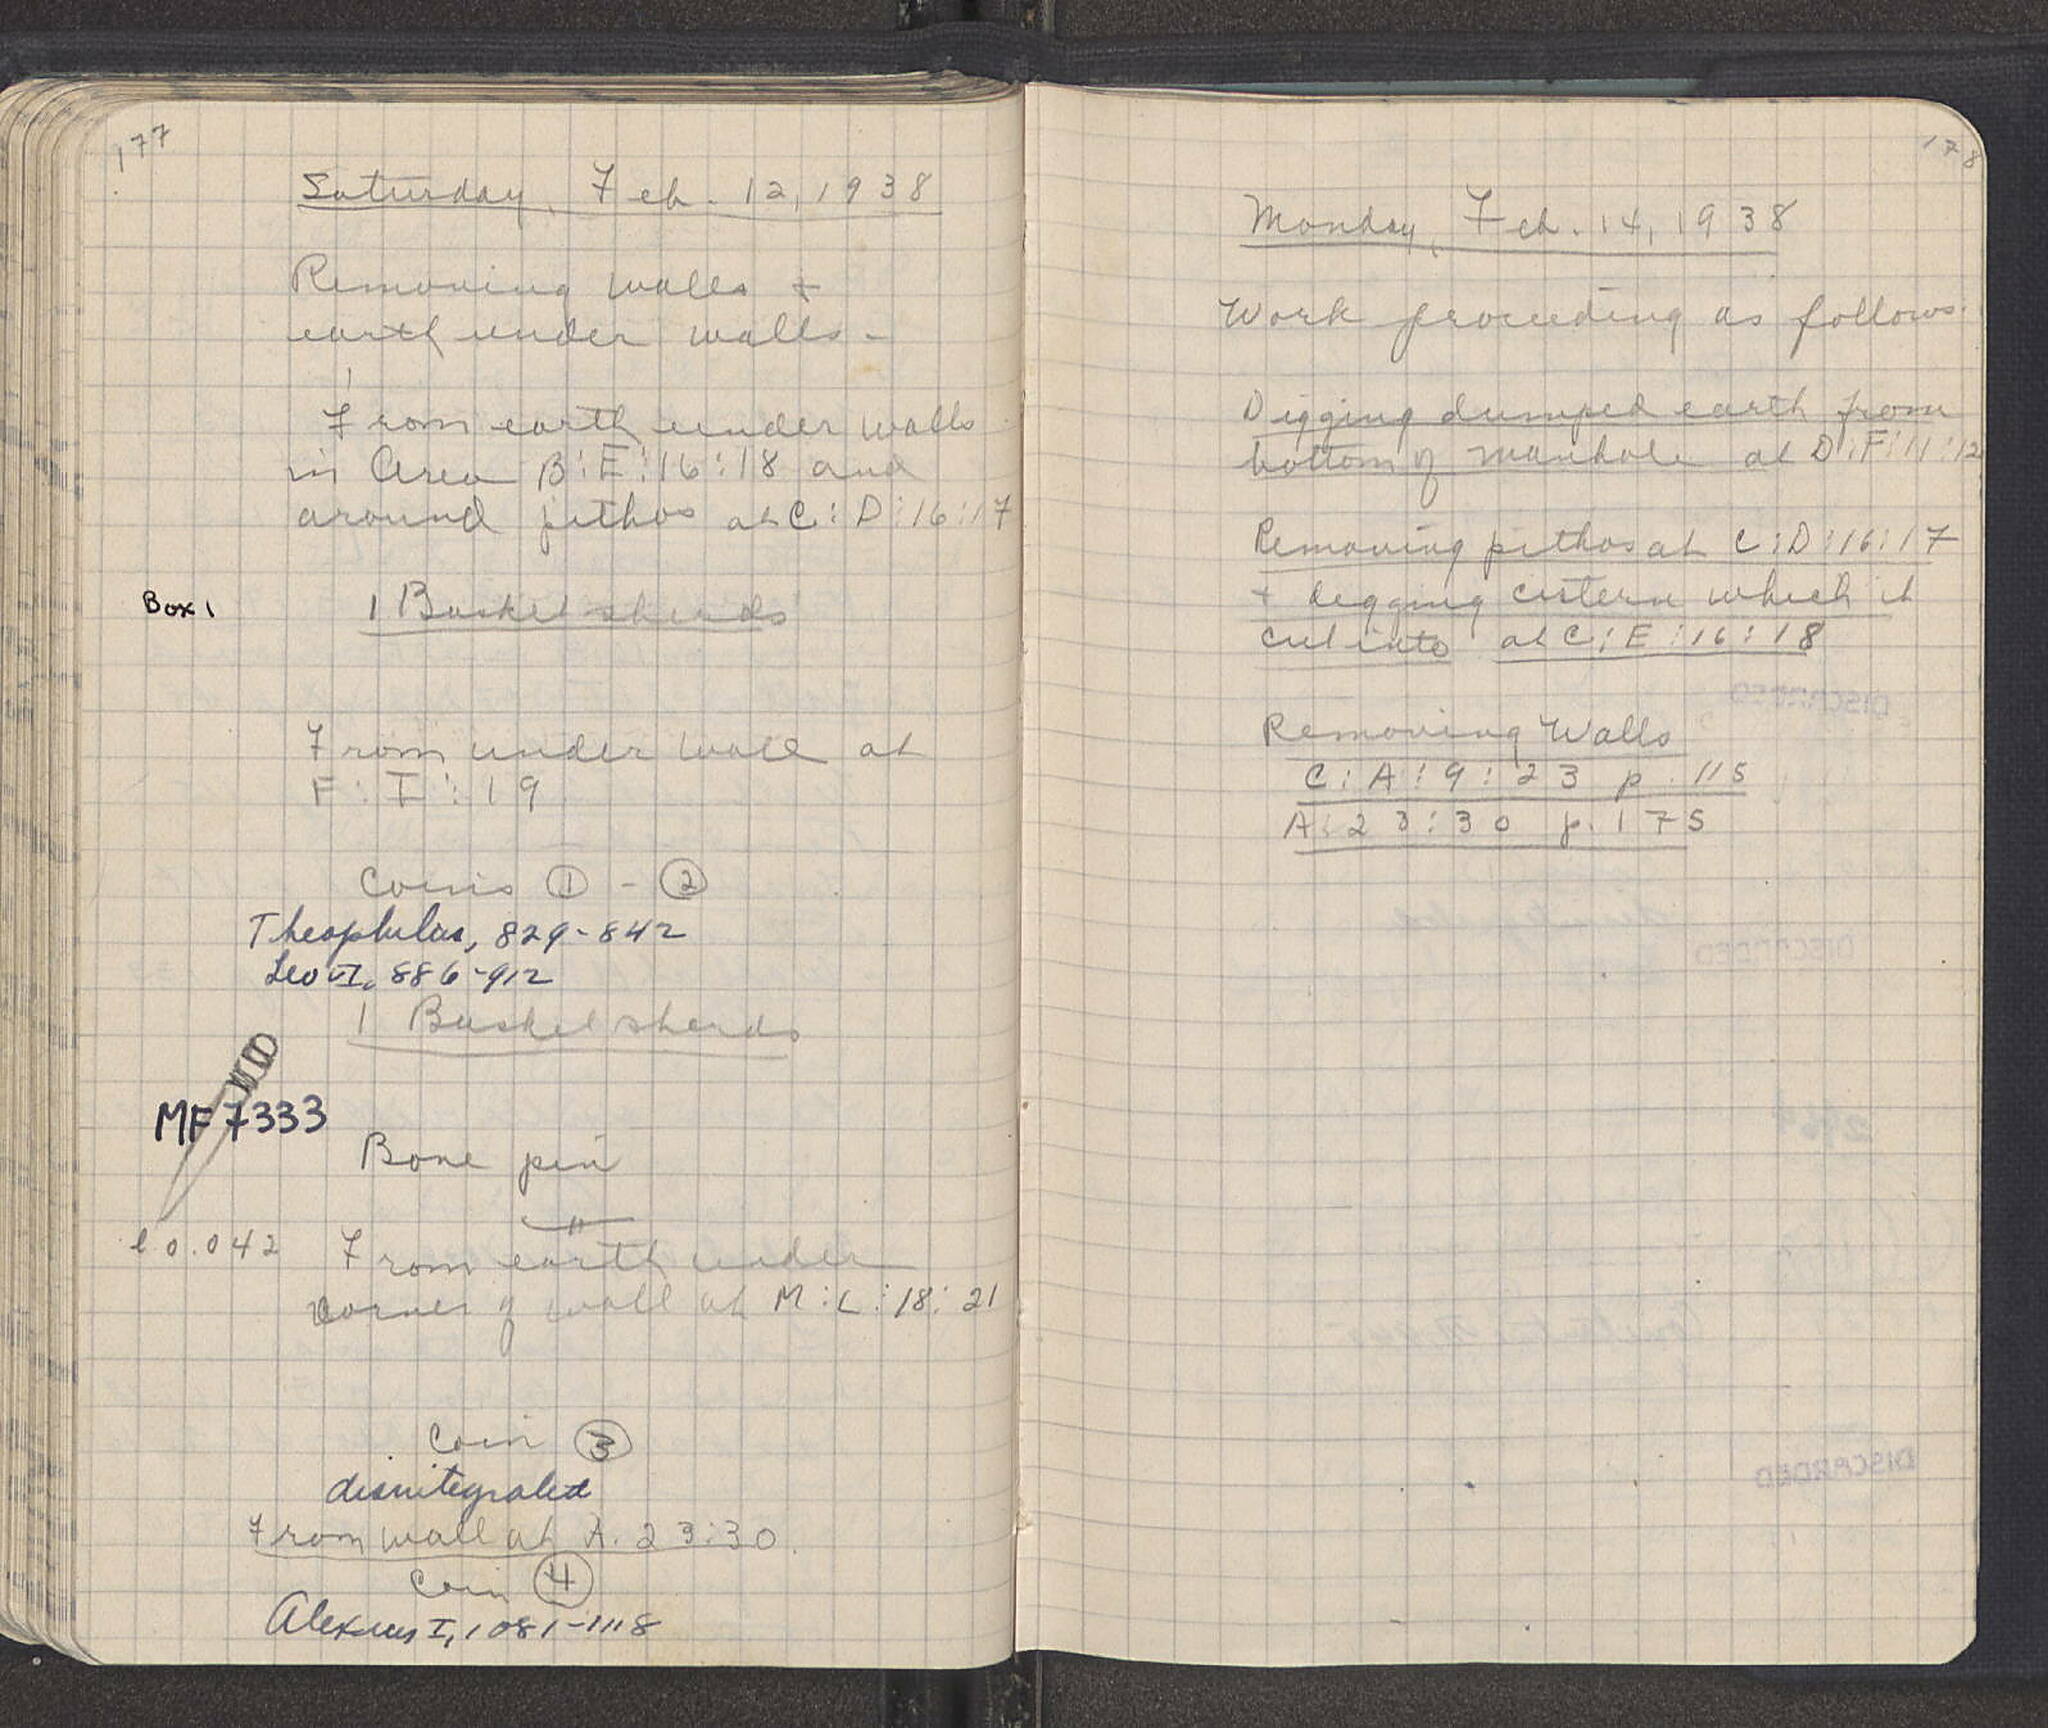 177
Saturday, Feb. 12, 1938
Removing walls +
earth under walls -
From earth under walls
in Area B:E:16:18 and
around pithos at C:D:16:17
Box 1
1 Basket sherds
From under wall at
F:I:19
Coins ① - ②
Theophilus, 829-842
Leo VI, 886-912
1 Basket sherds
MF 7333
Bone pin
l 0.042
From earth under
corner of wall at M:L:18:21
Coin ③
disintegrated
From wall at A.23:30.
Coin ④
Alexius I, 1081-1118
178
Monday, Feb. 14, 1938
Work proceeding as follows.
Digging dumped earth from
bottom of manhole at D:F:11:12
Removing pithos at C:D:16:17
+ digging cistern which it
cut into at C:E:16:18
Removing Walls
C:A:9:23 p.115
A:23:30 p.175